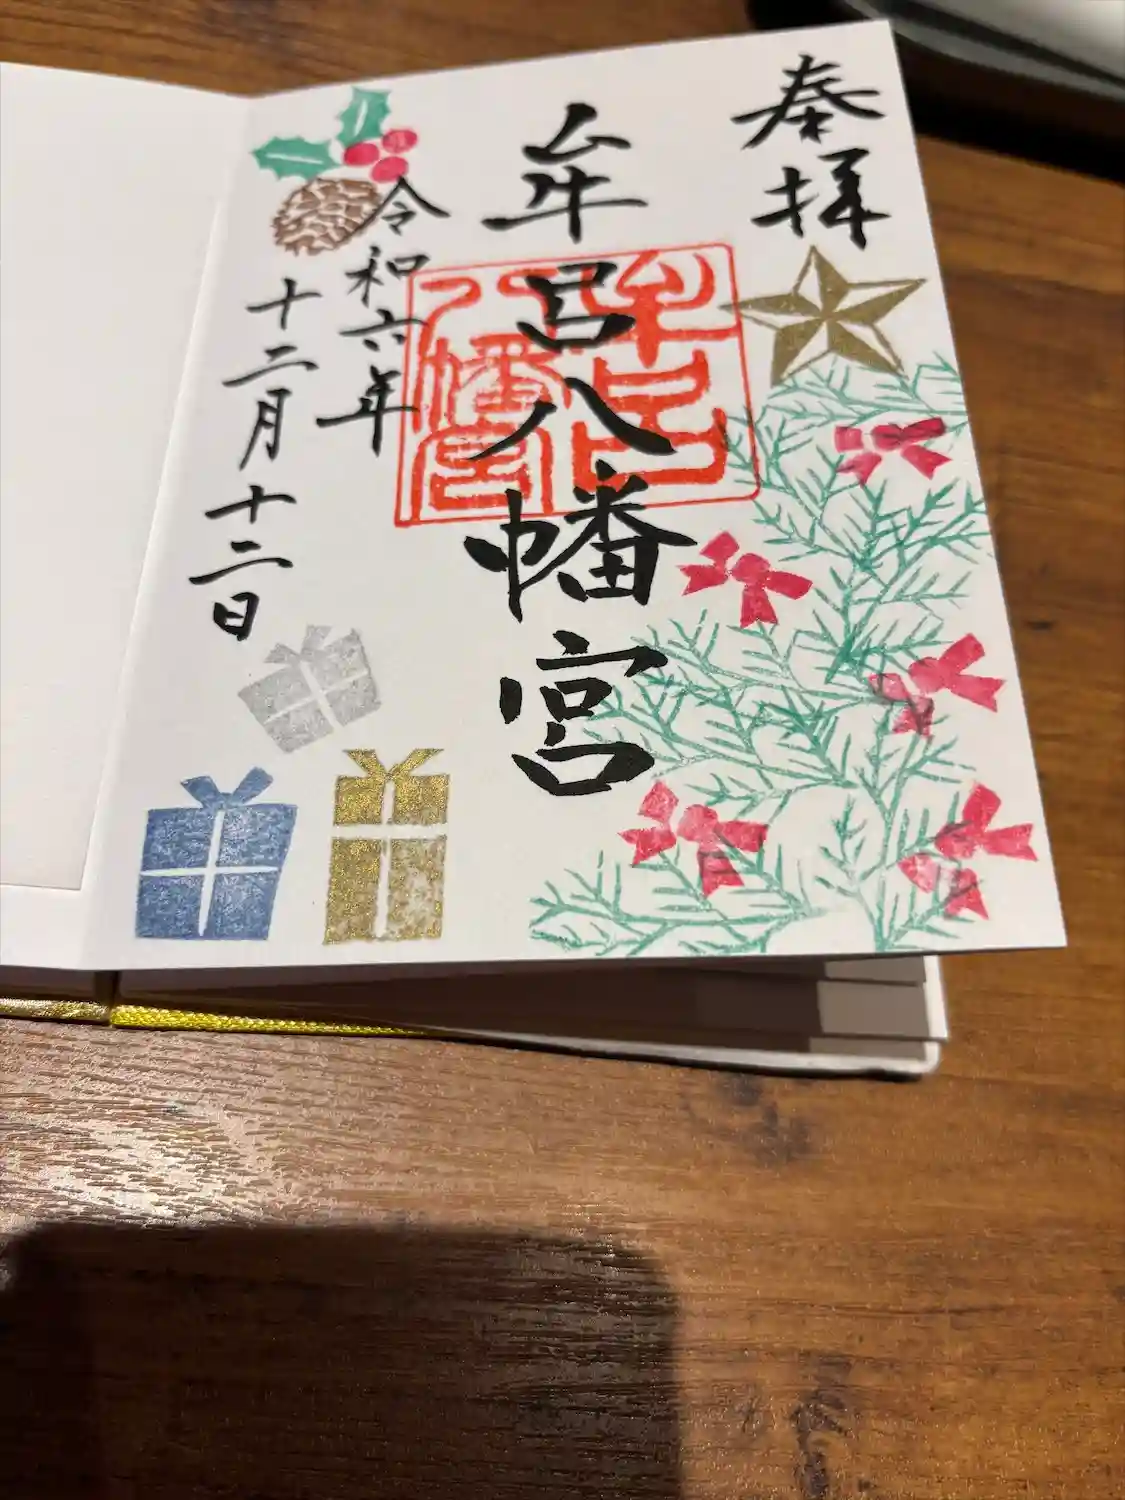 奉拝
牟呂八幡宮
牟呂八幡宮
令和六年
十二月十二日